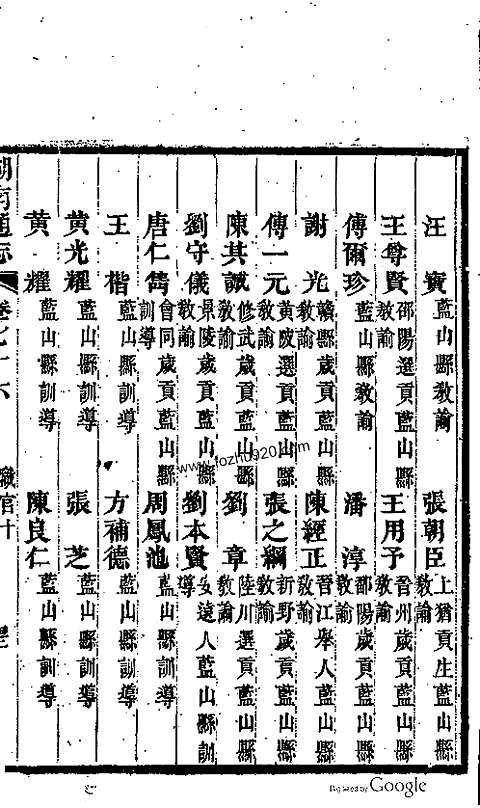 汪 寶 藍山縣教諭 張朝臣 上猶貢生藍山縣教諭
王尊賢 邵陽選貢藍山縣教諭 王用予 晉州歲貢藍山縣教諭
傅爾珍 藍山縣教諭 潘 淳 鄱陽歲貢藍山縣教諭
謝 光 贛縣歲貢藍山縣教諭 陳經正 晉江舉人藍山縣教諭
傅一元 黃陂選貢藍山縣教諭 張之綱 新野歲貢藍山縣教諭
陳其誠 修武歲貢藍山縣教諭 劉 章 陸川選貢藍山縣教諭
劉守儀 景陵歲貢藍山縣教諭 劉本賢 安遠人藍山縣訓導
唐仁雋 會同歲貢藍山縣訓導 周鳳池 藍山縣訓導
王 楷 藍山縣訓導 方補德 藍山縣訓導
黃光耀 藍山縣訓導 張 芝 藍山縣訓導
黃 耀 藍山縣訓導 陳良仁 藍山縣訓導
湖南通志 卷之十六 職官十
www.fozhu920.com
Digitized by Google